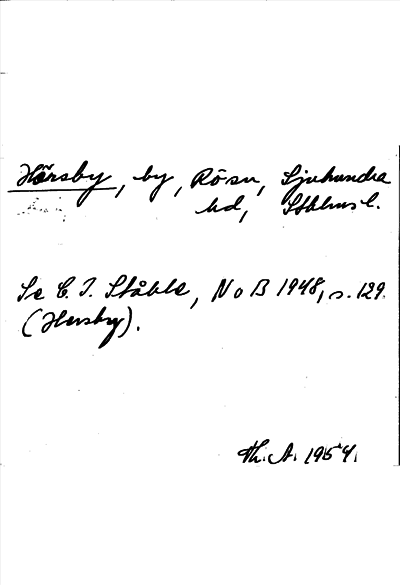 Hörsby, by, Rösn, Sjuhundra
hd, Sthlms l.
Se C. I. Ståhle, NoB 1948, s. 129.
(Hersby).
Th. A. 1954.